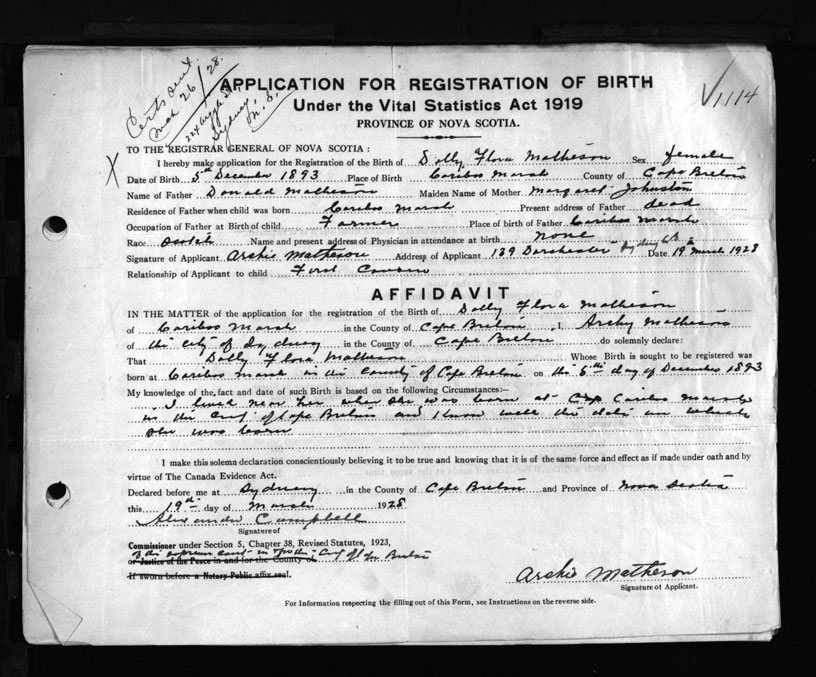 Certs out.
Mar 26/28.
Sydney,
N.S.
√1114
APPLICATION FOR REGISTRATION OF BIRTH
Under the Vital Statistics Act 1919
PROVINCE OF NOVA SCOTIA.
TO THE REGISTRAR GENERAL OF NOVA SCOTIA:
X
I hereby make application for the Registration of the Birth of Dolly Flora Matheson Sex female
Date of Birth 5th December 1893 Place of Birth Caribou Marsh County of Cape Breton
Name of Father Donald Matheson Maiden Name of Mother Margaret Johnston
Residence of Father when child was born Caribou Marsh Present address of Father dead
Occupation of Father at Birth of child Farmer Place of birth of Father Caribou Marsh
Race Scotch Name and present address of Physician in attendance at birth None
Signature of Applicant Archie Matheson Address of Applicant 139 Dorchester Sydney C.B. Date 19 March 1928
Relationship of Applicant to child First Cousin
AFFIDAVIT
IN THE MATTER of the application for the registration of the Birth of Dolly Flora Matheson
of Caribou Marsh in the County of Cape Breton , I, Archy Matheson
of the city of Sydney in the County of Cape Breton do solemnly declare:
That Dolly Flora Matheson Whose Birth is sought to be registered was
born at Caribou Marsh in the County of Cape Breton on the 5th day of December 1893
My knowledge of the fact and date of such Birth is based on the following Circumstances:—
I lived near her when she was born at Caribou Marsh
in the County of Cape Breton and I know well the date on which
she was born
I make this solemn declaration conscientiously believing it to be true and knowing that it is of the same force and effect as if made under oath and by
virtue of The Canada Evidence Act.
Declared before me at Sydney in the County of Cape Breton and Province of Nova Scotia
this 19th day of March 1928
Alexander Campbell
Signature of
Commissioner under Section 5, Chapter 38, Revised Statutes, 1923,
of the supreme court in for the County of Cape Breton
or Justice of the Peace in and for the County of
If sworn before a Notary Public affix seal.
Archie Matheson
Signature of Applicant.
For Information respecting the filling out of this Form, see Instructions on the reverse side.